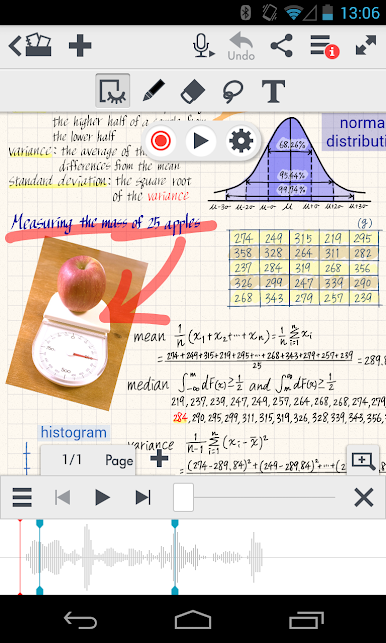 13:06
Undo
T
the higher half of a sample from
the lower half
variance: the average of the
differences from the mean
standard deviation: the square root
of the variance
norma
distributi
68.26%
95.44%
99.74%
μ-3σ μ-2σ μ-σ μ μ+σ μ+2σ μ+3σ
Measuring the mass of 25 apples
(g)
274 249 315 219 295
358 328 264 311 282
237 284 319 268 356
326 299 247 339 290
268 343 279 257 239
mean 1/n (x₁+x₂+⋯+xₙ) = 1/n Σⁿᵢ₌₁ xᵢ
= 274+249+315+219+295+⋯+268+343+279+257+239 / 25 = 289.8
median ∫ᵐ₋∞ dF(x) ≥ 1/2 and ∫^∞ₘ dF(x) ≥ 1/2
219, 237, 239, 247, 249, 257, 264, 268, 268, 274, 279
284, 290, 295, 299, 311, 315, 319, 326, 328, 339, 343, 356, 3
histogram
variance 1/n-1 Σⁿᵢ₌₁ (xᵢ - x̄)²
= (274-289.84)²+(249-289.84)²+⋯+(2
1/1 Page